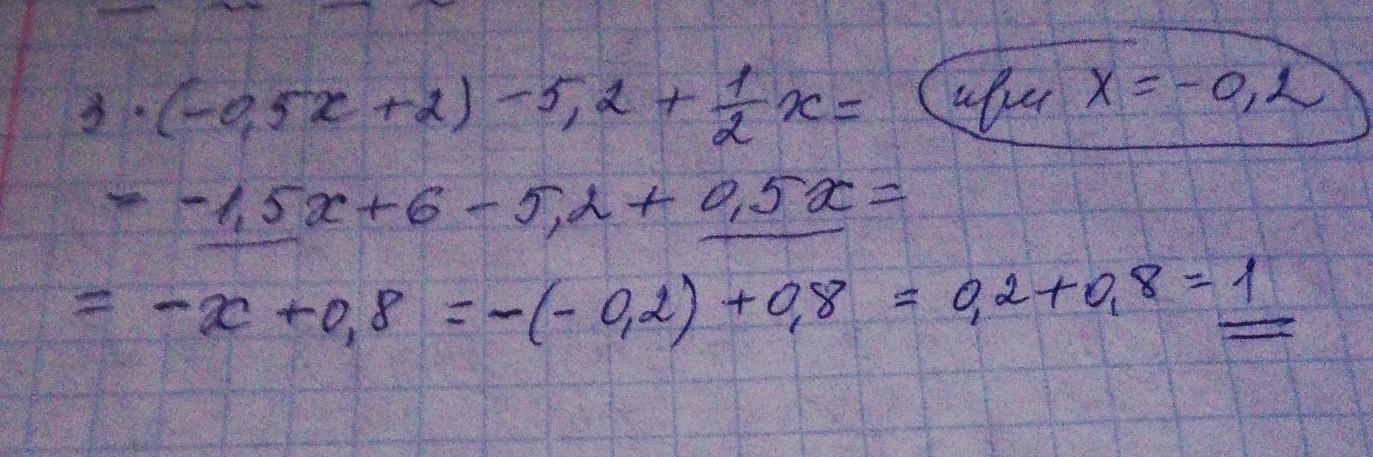 3·(-0,5x+2)-5,2+1/2x= при x=-0,2
= -1,5x+6-5,2+0,5x=
= -x+0,8=-(-0,2)+0,8=0,2+0,8=1